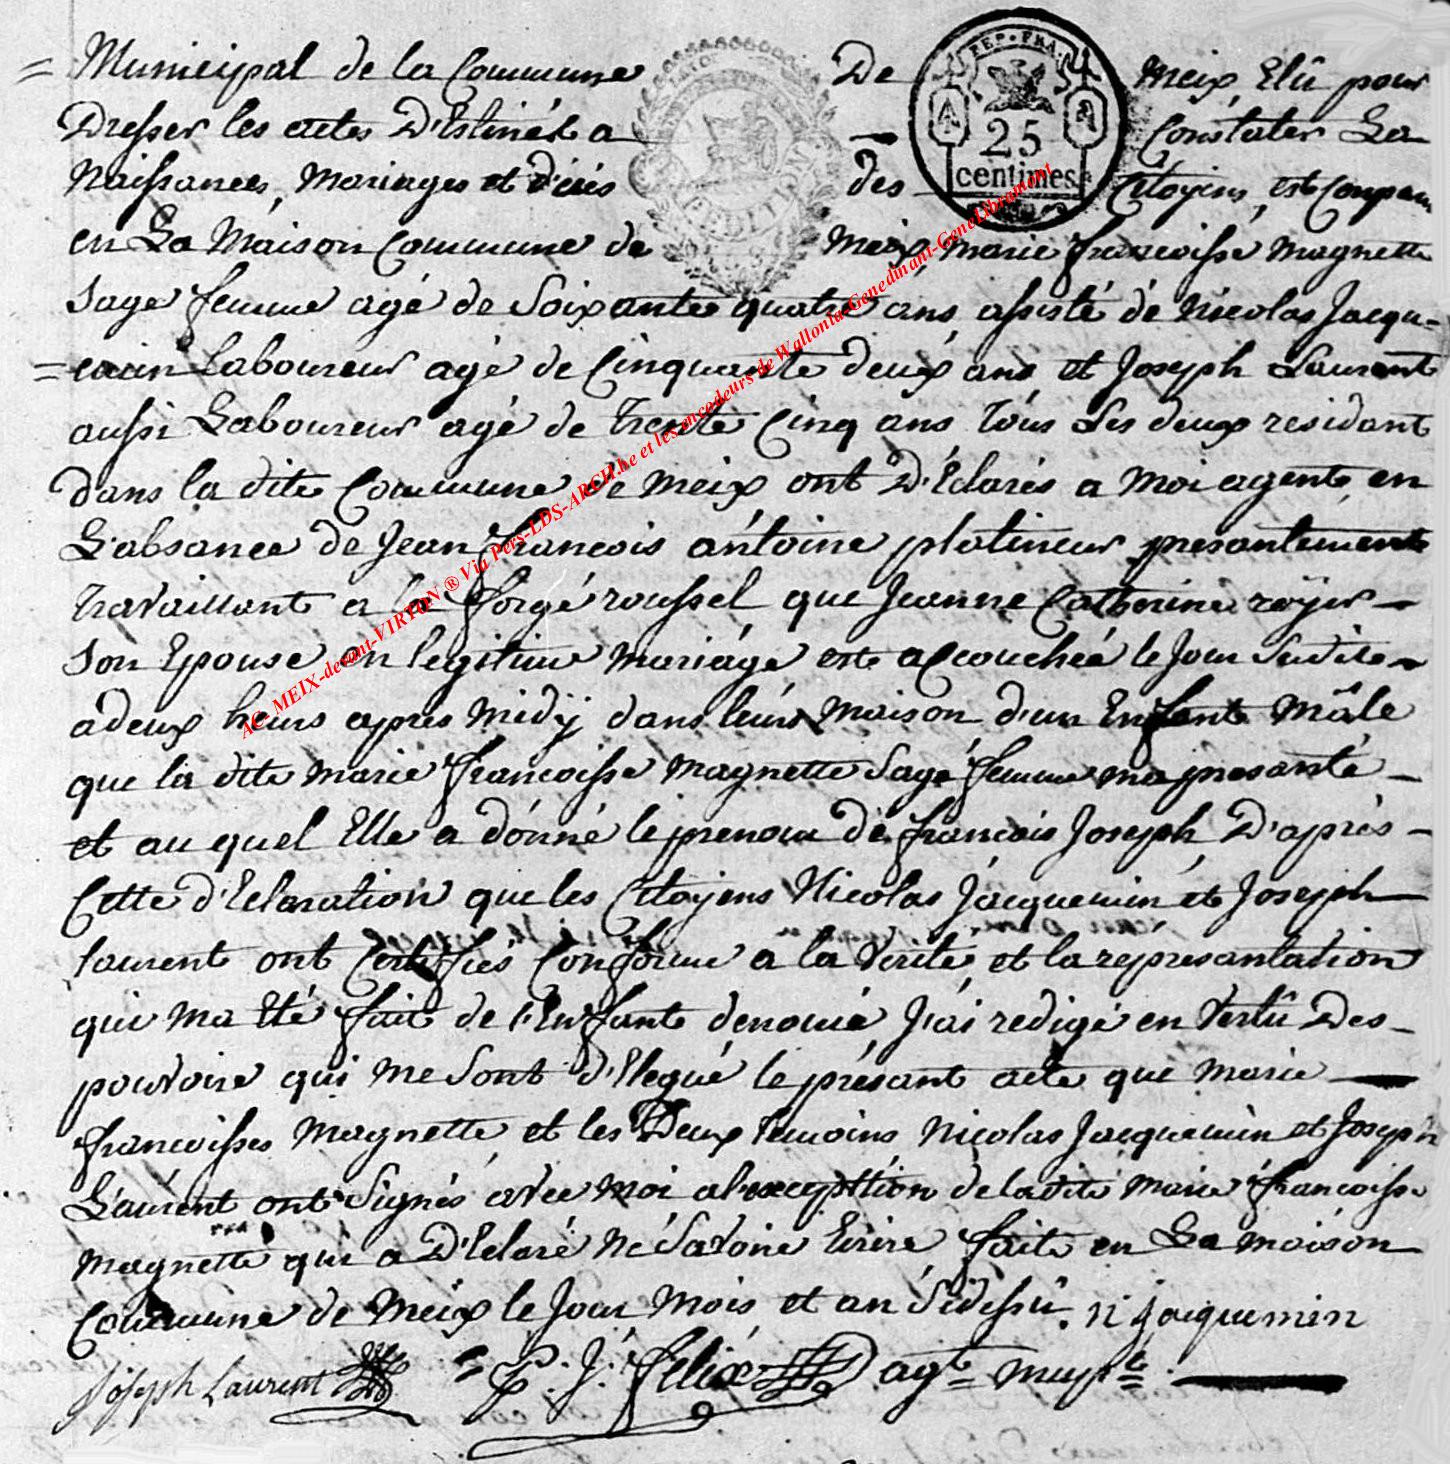 = Municipal de la Commune De Meix, Elû pour
Dresser les actes D'Estinés a Constater La
Naissances, Mariages et d'cés des Citoyens, est Comparu
en La Maison Commune de Meix, Marie francoisse Magnette
Sage femme agé de Soixante quatre ans assisté de Nicolas Jacqu-
= emin Laboureur agé de Cinquante deux ans et Joseph Laurent
aussi Laboureur agé de trente Cinq ans tous Les deux residant
dans la dite Commune de Meix ont D'Eclarés a Moi agente en
L'absance de Jean francois antoine platineur presantemente
travaillant a la forgé roussel que Jeanne Catherine royer -
Son Epouse en legitime Mariage este accouchéé le Jour Sudite -
a deux heurs apres Midÿ dans leurs Maison d'un Enfante Mâle
que la dite Marie francoisse Magnette Sage femme ma presanté -
et au quel Elle a donné le prenom de francois Joseph D'aprés -
Cette d'Eclaration que les Citoyens Nicolas Jacquemin et Joseph
laurent ont Certifiés Conforme a la Verité et la représantation
qui Ma Eté fait de l'Enfante denomé J'ai redigé en Vertû Des -
pouvoire qui Me Sont d'Elegué le présant acte que Marie
francoisses Magnette et les Deux temoins Nicolas Jacquemin et Joseph
Laurent ont Signés avec Moi a l'exception de la dite Marie francoisse
Magnette qui a D'Eclaré Ne Savoire Ecrire faite en La Maison
Commune de Meix le Jour Mois et an Sidessû. N Jacquemin
Joseph Laurent = P. J. felix agt mupl
REP · FRA
A 25 A
centimes
AC- MEIX-devant-VIRTON ® Via Pers-LDS-ARCH.be et les encodeurs de Wallonia-Genedinant-GeneLibramont